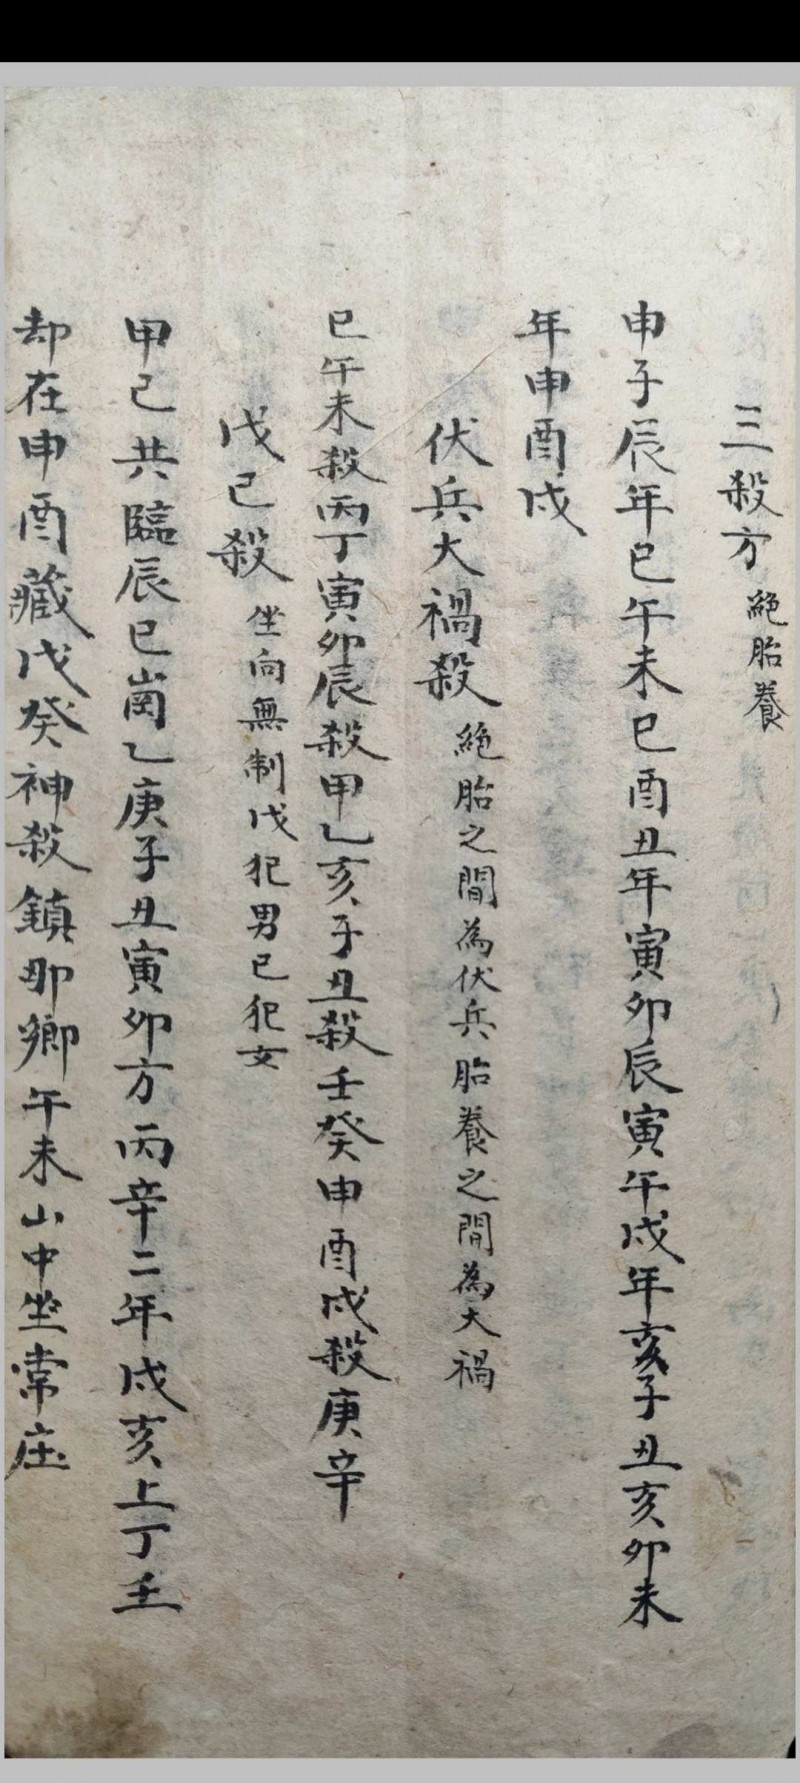 三殺方 絕胎養
申子辰年巳午未巳酉丑年寅卯辰寅午戌年亥子丑亥卯未
年申酉戌
伏兵大禍殺 絕胎之間為伏兵胎養之間為大禍
巳午未殺丙丁寅卯辰殺甲乙亥子丑殺壬癸申酉戌殺庚辛
戊己殺 坐向無制戊犯男己犯女
甲己共臨辰巳崗乙庚子丑寅卯方丙辛二年戌亥上丁壬
却在申酉藏戊癸神殺鎮那鄉午未山中坐常庄